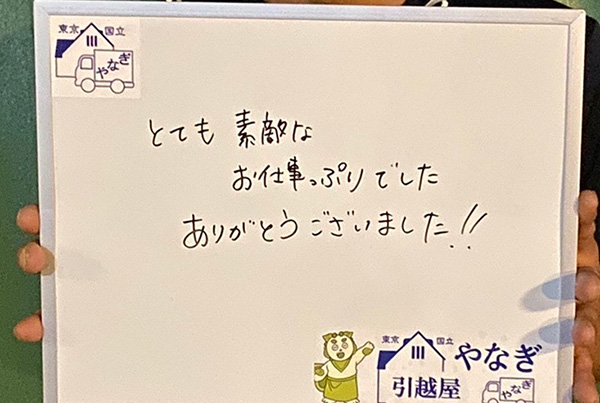 東京 国立
やなぎ
とても 素敵な
お仕事っぷりでした
ありがとうございました!!
東京 国立
やなぎ
引越屋
やなぎ